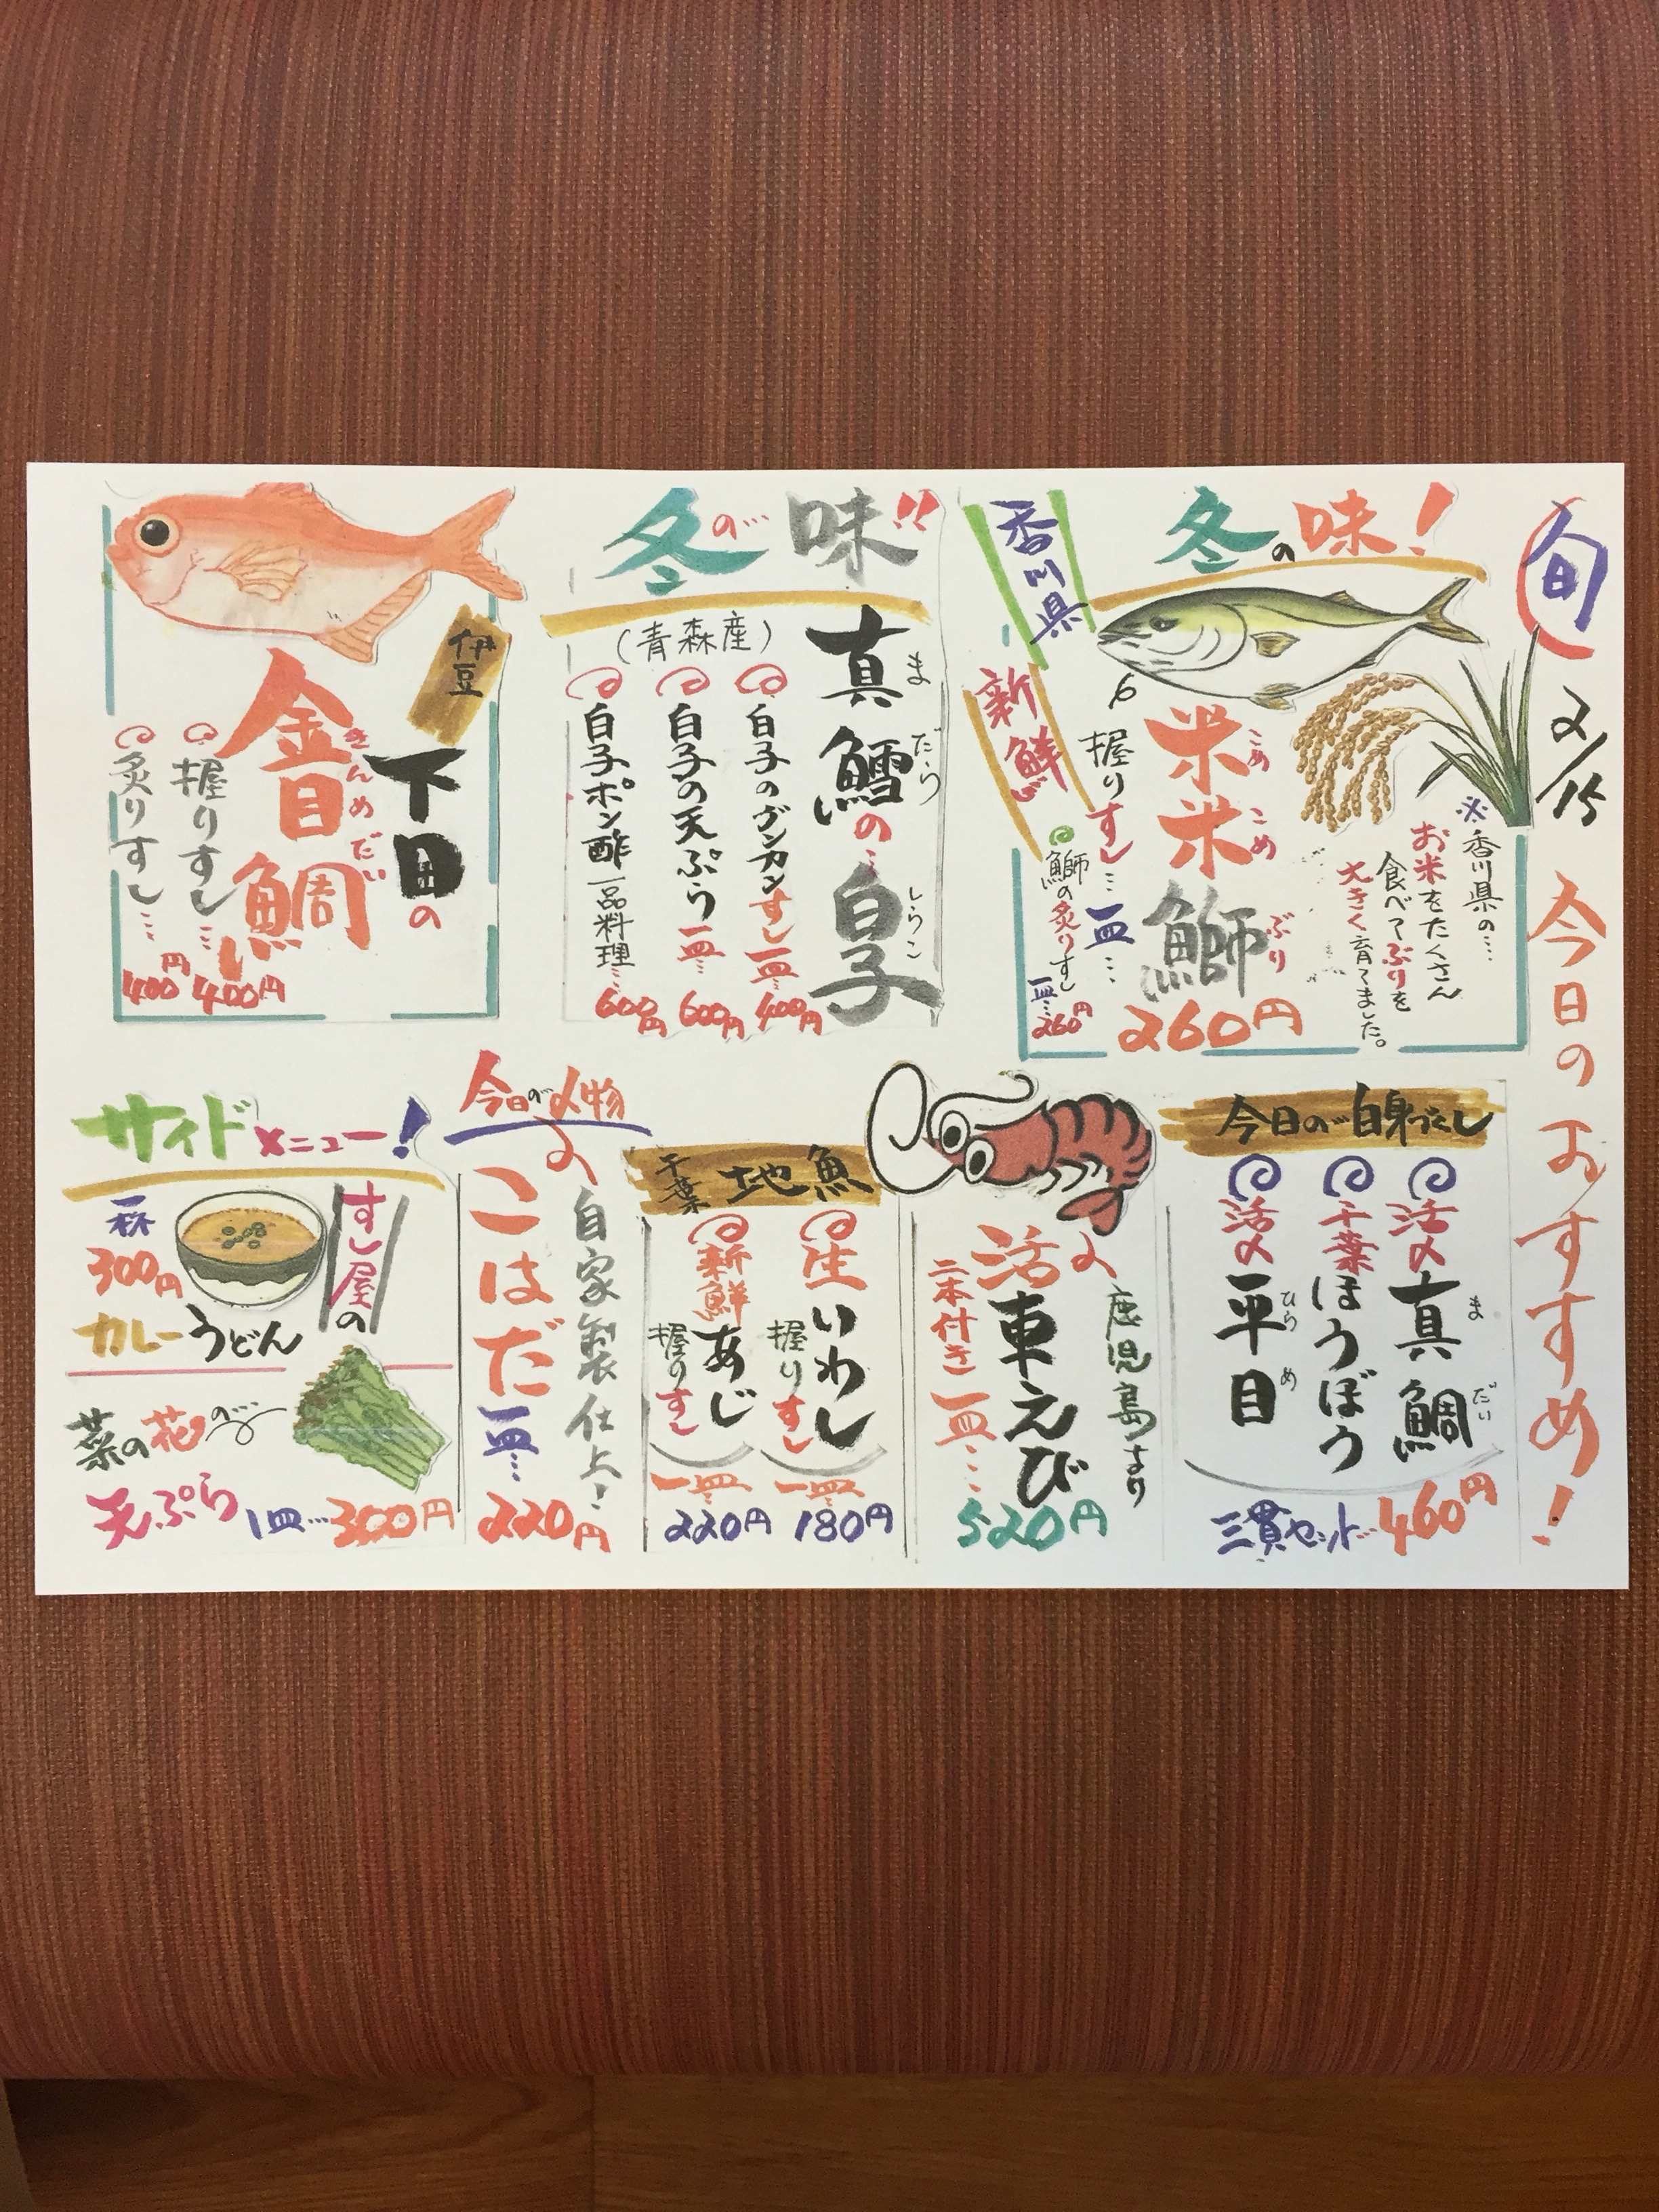 旬
2/15
今日のおすすめ!
冬の味!
香川県
新鮮
米米鰤
こめこめぶり
握りすし…一皿…
260円
鰤の炙りすし
一皿…260円
※香川県の…
お米をたくさん
食べてぶりを
大きく育てました。
冬の味!!
真鱈の白子
まだら しらこ
(青森産)
白子のグンカンすし一皿…400円
白子の天ぷら一皿…600円
白子ポン酢一品料理…600円
伊豆
下田の
金目鯛
きんめだい
握りすし…400円
炙りすし…400円
今日の白身づくし
活〆真鯛
まだい
千葉ほうぼう
活〆平目
ひらめ
三貫セット…460円
鹿児島より
活〆車えび
二本付き一皿…
520円
千葉地魚
生いわし
握りすし
一皿…
180円
新鮮あじ
握りすし
一皿…
220円
今日の〆物
自家製仕上!
こはだ
一皿…
220円
サイドメニュー!
すし屋の
カレーうどん
一杯
300円
菜の花の
天ぷら
1皿…300円